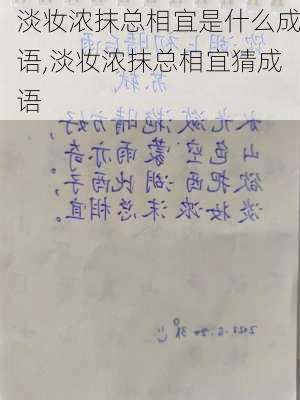 淡妆浓抹总相宜是什么成
语,淡妆浓抹总相宜猜成
语
饮湖上初晴后雨
苏轼
水光潋滟晴方好,
山色空蒙雨亦奇。
欲把西湖比西子,
淡妆浓抹总相宜。